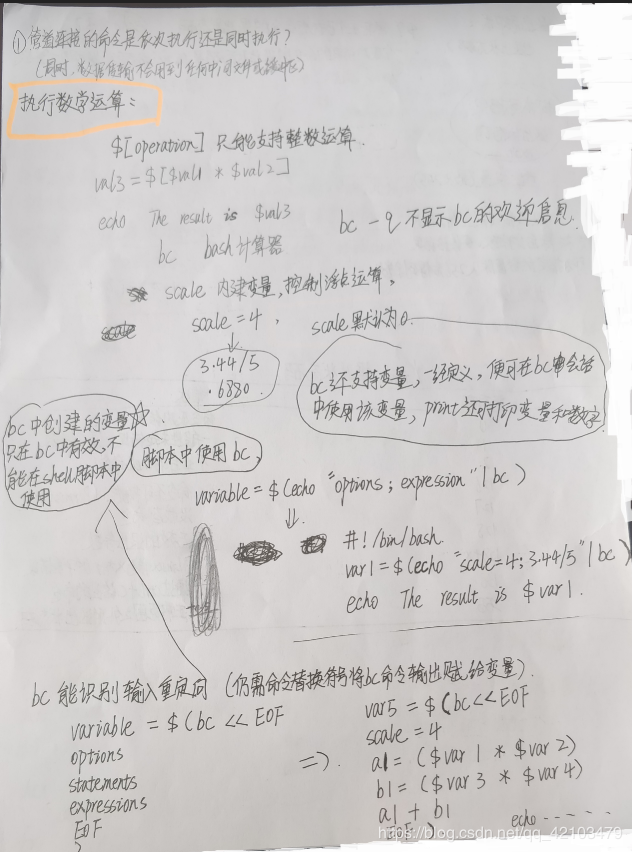 ①管道连接的命令是依次执行还是同时执行?
(同时,数据传输不会用到任何中间文件或缓冲区)
执行数学运算:
$[operation] 只能支持整数运算.
val3=$[$val1 * $val2]
echo The result is $val3
bc -q 不显示bc的欢迎信息.
bc bash计算器
scale 内建变量,控制浮点运算,
scale
scale=4, scale默认为0.
3.44/5
.6880
bc还支持变量,一经定义,便可在bc会话
中使用该变量, print还可打印变量和数字
bc中创建的变量
只在bc中有效,不
能在shell脚本中
使用
脚本中使用bc,
variable=$(echo "options; expression" | bc)
#!/bin/bash
var1=$(echo "scale=4; 3.44/5" | bc)
echo The result is $var1.
bc能识别输入重定向 (仍需命令替换符号将bc命令输出赋给变量).
variable = $(bc << EOF
options
statements
expressions
EOF
)
=>.
var5 = $(bc << EOF
scale = 4
a1 = ($var1 * $var2)
b1 = ($var3 * $var4)
a1 + b1
EOF
)
echo ......
https://blog.csdn.net/qq_42103479